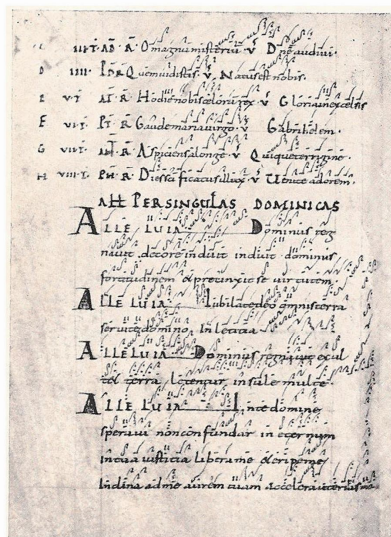 III·T· AD· R· Omagnum misterium· V D
IIII· R Quem uidistis· V Natus est nobis·
E V·T· R· Hodie nobis celorum rex· V Gloria in excelsis
F VI·T· R· Gaude maria uirgo· V Gabrihelem·
G VII·T· R· Aspiciens a longe· V Quique terrigine·
H VIII·T· R· Dies sanctificatus illux· V Uenite adorem·
ALL PER SINGULAS DOMINICAS
ALLELUIA Dominus reg
nauit decore induit induit dominus
fortitudinem & precinxit se uirtutem
ALLELUIA Iubilate deo omnis terra
seruite domino in leticia
ALLELUIA Dominus regnauit exul
tet terra letentur insule multe
ALLELUIA In te domine
speraui non confundar in eternum
in tua iusticia libera me & eripe me
Inclina ad me aurem tuam accelera